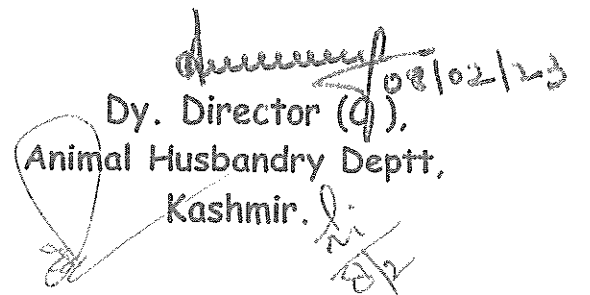 08/02/23
Dy. Director (Q),
Animal Husbandry Deptt,
Kashmir.
8/2